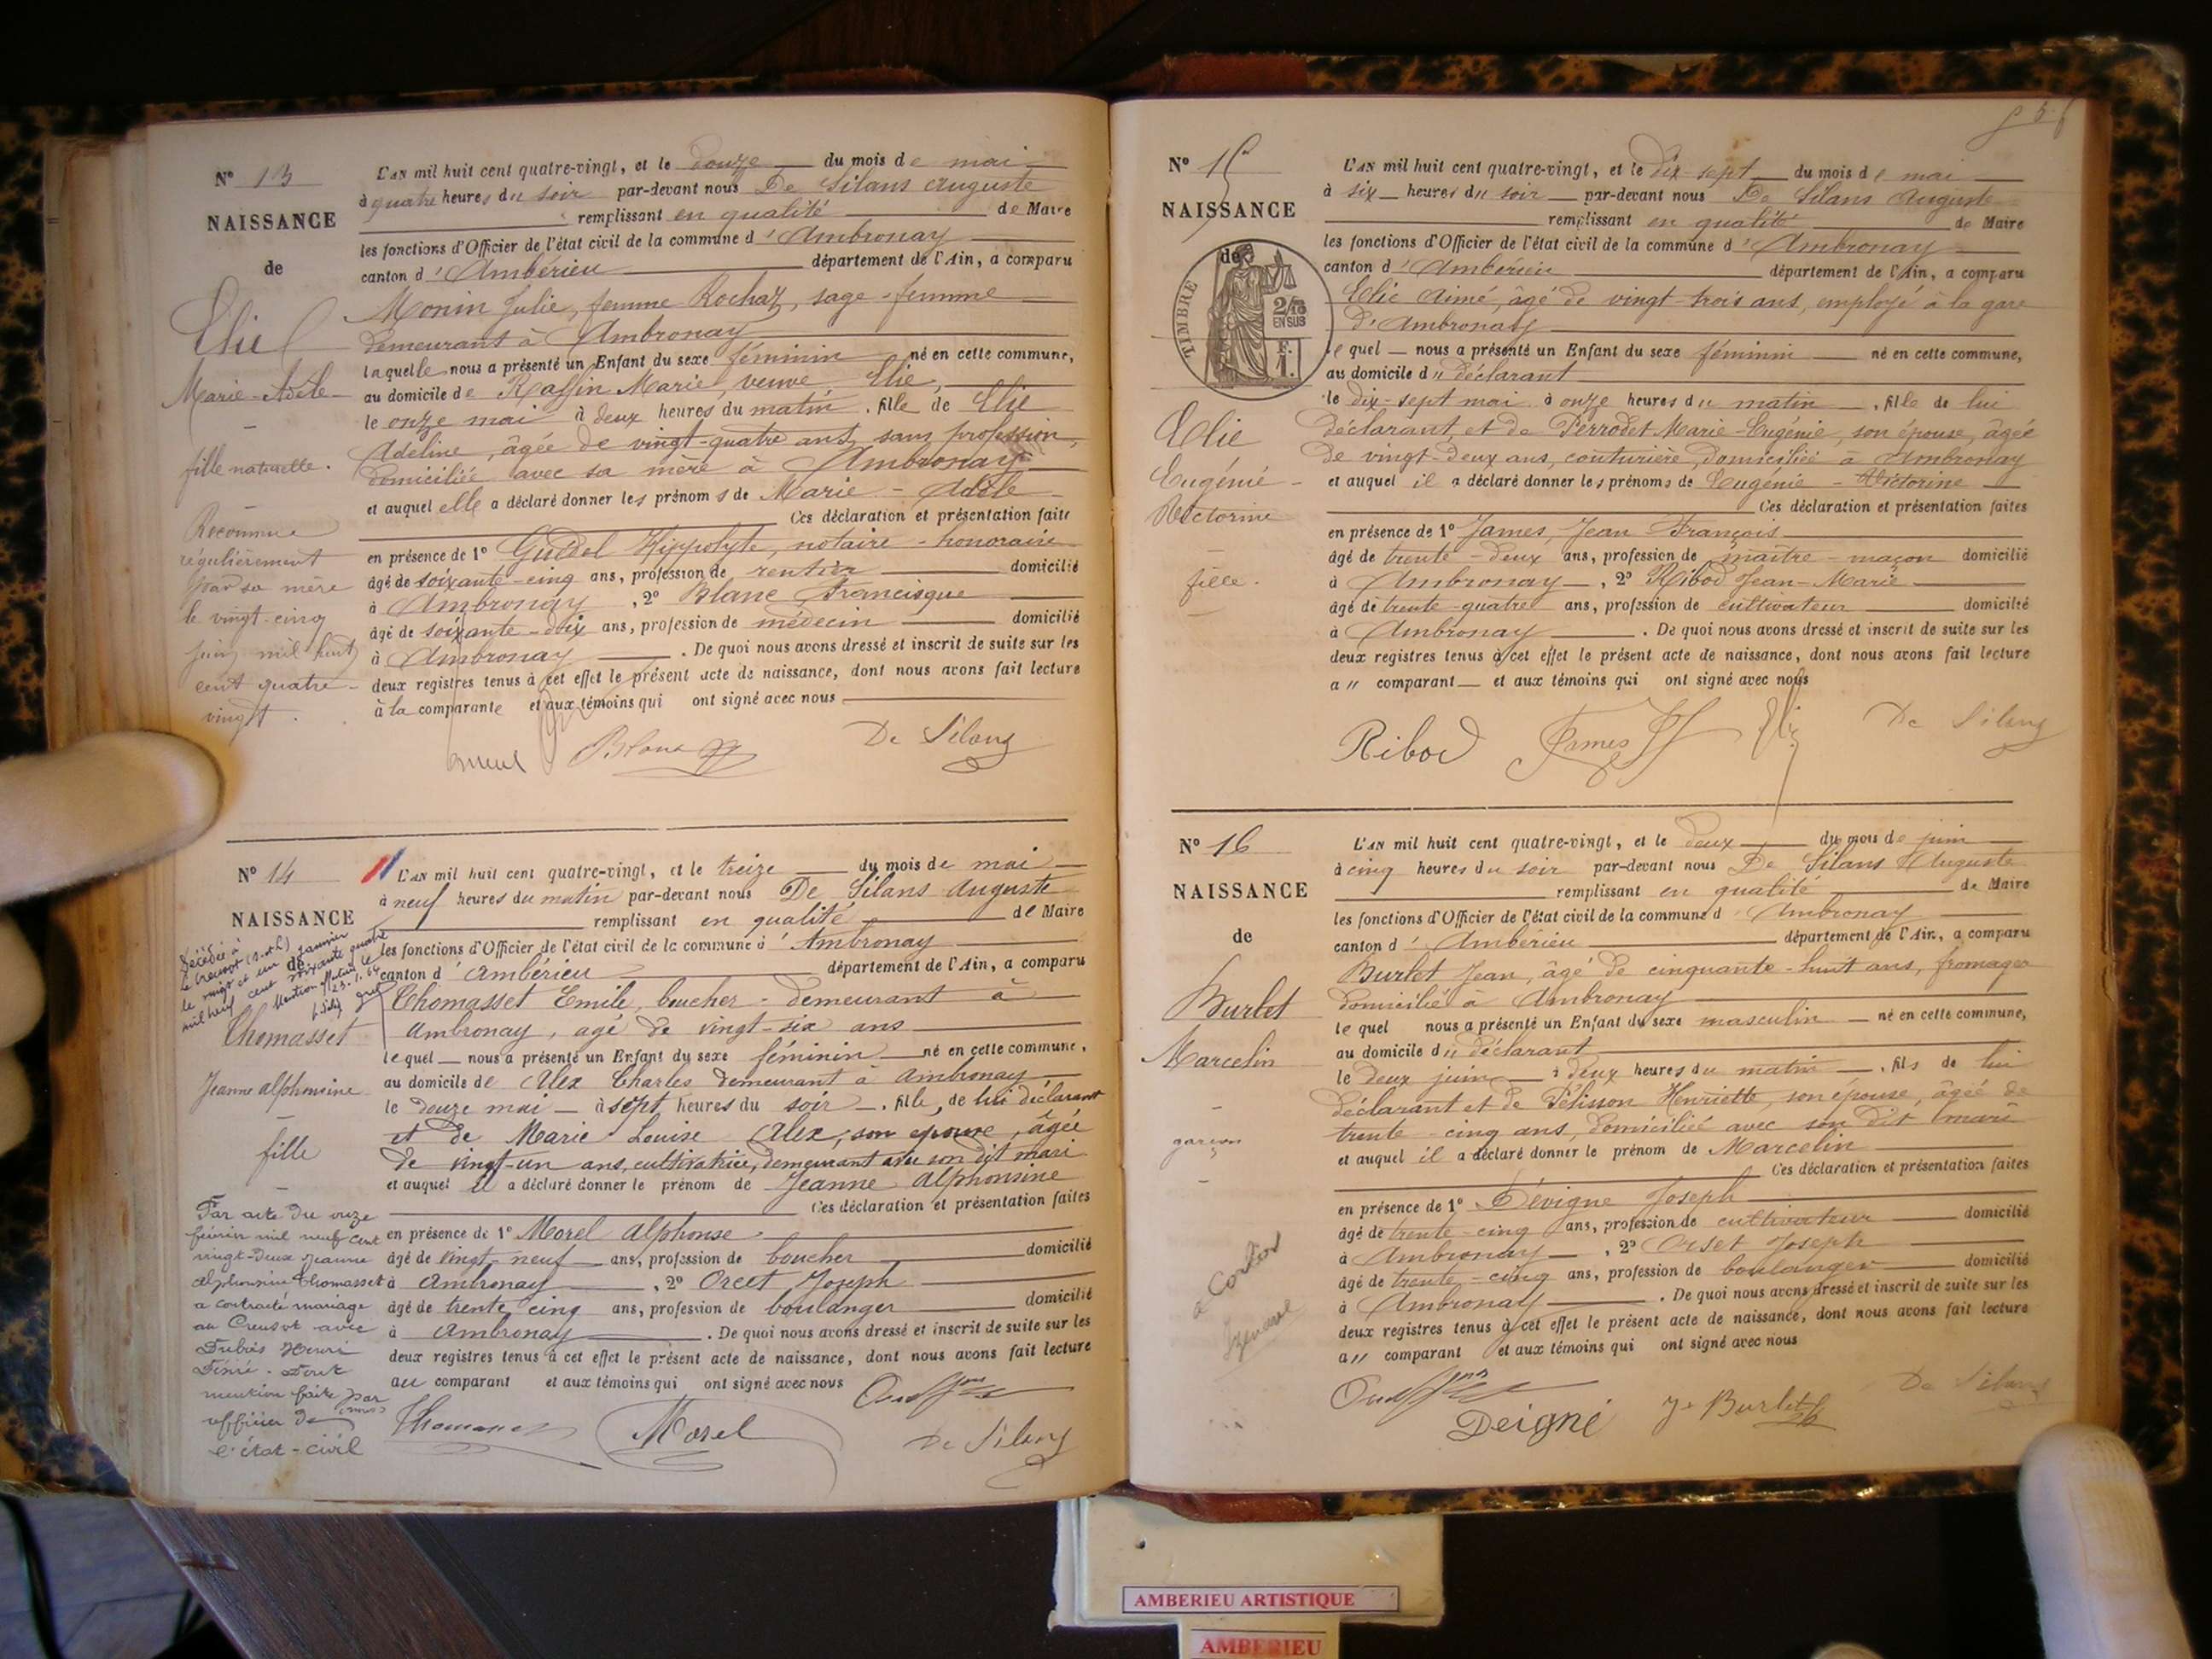 N° 13
NAISSANCE
de
Elie
Marie-Adèle
fille naturelle.
Reconnue
régulièrement
par sa mère
le vingt-cinq
juin mil huit
cent quatre-
vingt.
L'AN mil huit cent quatre-vingt, et le douze du mois de mai
à quatre heures du soir par-devant nous De Silans Auguste
remplissant en qualité de Maire
les fonctions d'Officier de l'état civil de la commune d'Ambronay
canton d'Ambérieu département de l'Ain, a comparu
Monin Julie, femme Rochaz, sage-femme
demeurant à Ambronay
laquelle nous a présenté un Enfant du sexe féminin né en cette commune,
au domicile de Raffin Marie, veuve Elie,
le onze mai à deux heures du matin, fille de Elie
Adeline, âgée de vingt-quatre ans, sans profession,
domiciliée avec sa mère à Ambronay
et auquel elle a déclaré donner les prénoms de Marie-Adèle
Ces déclaration et présentation faites
en présence de 1° Hippolyte, notaire-honoraire
âgé de soixante-cinq ans, profession de rentier domicilié
à Ambronay, 2° Blanc Francisque
âgé de soixante-dix ans, profession de médecin domicilié
à Ambronay. De quoi nous avons dressé et inscrit de suite sur les
deux registres tenus à cet effet le présent acte de naissance, dont nous avons fait lecture
à la comparante et aux témoins qui ont signé avec nous
Blanc De Silans
N° 14
NAISSANCE
de
Décédée à
le Creusot (S-et-L)
le vingt et un janvier
mil neuf cent soixante quatre
Mention le
23.1.64
Thomasset
Jeanne alphonsine
fille
Par acte du onze
février mil neuf cent
vingt-deux Jeanne
alphonsine Thomasset
a contracté mariage
au Creusot avec
Dubois Henri
Désiré. Dont
mention faite par nous
officier de
l'état-civil
L'AN mil huit cent quatre-vingt, et le treize du mois de mai
à neuf heures du matin par-devant nous De Silans Auguste
remplissant en qualité de Maire
les fonctions d'Officier de l'état civil de la commune d'Ambronay
canton d'Ambérieu département de l'Ain, a comparu
Thomasset Emile, boucher demeurant à
Ambronay, agé de vingt-six ans
lequel nous a présenté un Enfant du sexe féminin né en cette commune,
au domicile de Alex Charles demeurant à Ambronay
le douze mai à sept heures du soir, fille, de lui déclarant
et de Marie Louise Alex, son epouse, âgée
de vingt-un ans, cultivatrice, demeurant avec son dit mari
et auquel il a déclaré donner le prénom de Jeanne Alphonsine
Ces déclaration et présentation faites
en présence de 1° Morel Alphonse
âgé de vingt-neuf ans, profession de boucher domicilié
à Ambronay, 2° Orcet Joseph
âgé de trente cinq ans, profession de boulanger domicilié
à Ambronay. De quoi nous avons dressé et inscrit de suite sur les
deux registres tenus à cet effet le présent acte de naissance, dont nous avons fait lecture
au comparant et aux témoins qui ont signé avec nous
Thomasset Morel De Silans
N° 15
NAISSANCE
de
TIMBRE
2/10
EN SUS
F.
1.
Elie
Eugénie-
Victorine
fille.
L'AN mil huit cent quatre-vingt, et le dix-sept du mois de mai
à six heures du soir par-devant nous De Silans Auguste
remplissant en qualité de Maire
les fonctions d'Officier de l'état civil de la commune d'Ambronay
canton d'Ambérieu département de l'Ain, a comparu
Elie Aimé, âgé de vingt-trois ans, employé à la gare
d'Ambronay
lequel nous a présenté un Enfant du sexe féminin né en cette commune,
au domicile du déclarant
le dix-sept mai à onze heures du matin, fille de lui
déclarant, et de Perrodet Marie-Eugénie, son épouse, âgée
de vingt-deux ans, couturière, domiciliée à Ambronay
et auquel il a déclaré donner les prénoms de Eugénie-Victorine
Ces déclaration et présentation faites
en présence de 1° James, Jean-François
âgé de trente-deux ans, profession de maître-maçon domicilié
à Ambronay, 2° Ribod Jean-Marie
âgé de trente-quatre ans, profession de cultivateur domicilié
à Ambronay. De quoi nous avons dressé et inscrit de suite sur les
deux registres tenus à cet effet le présent acte de naissance, dont nous avons fait lecture
au comparant et aux témoins qui ont signé avec nous
Ribod James Elie De Silans
N° 16
NAISSANCE
de
Burlet
Marcelin
garçon
L'AN mil huit cent quatre-vingt, et le deux du mois de juin
à cinq heures du soir par-devant nous De Silans Auguste
remplissant en qualité de Maire
les fonctions d'Officier de l'état civil de la commune d'Ambronay
canton d'Ambérieu département de l'Ain, a comparu
Burlet Jean, âgé de cinquante-huit ans, fromager
domicilié à Ambronay
lequel nous a présenté un Enfant du sexe masculin né en cette commune,
au domicile du déclarant
le deux juin à deux heures du matin, fils de lui
déclarant et de Pélisson Henriette, son épouse, âgée de
trente-cinq ans, domiciliée avec son dit mari
et auquel il a déclaré donner le prénom de Marcelin
Ces déclaration et présentation faites
en présence de 1° Dévigne Joseph
âgé de trente-cinq ans, profession de cultivateur domicilié
à Ambronay, 2° Orset Joseph
âgé de trente-cinq ans, profession de boulanger domicilié
à Ambronay. De quoi nous avons dressé et inscrit de suite sur les
deux registres tenus à cet effet le présent acte de naissance, dont nous avons fait lecture
au comparant et aux témoins qui ont signé avec nous
Deigné Je Burlet De Silans
AMBERIEU ARTISTIQUE
AMBERIEU